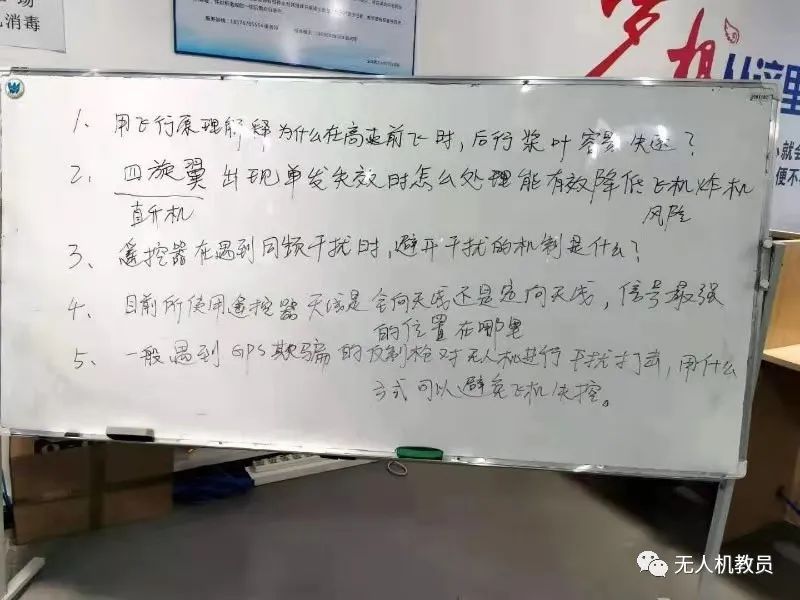 消毒
梦想从这里
就会
便不
1、用飞行原理解释为什么在高速前飞时,后行桨叶容易失速?
2、四旋翼出现单发失效时怎么处理能有效降低飞机炸机
直升机
风险
3、遥控器在遇到同频干扰时,避开干扰的机制是什么?
4、目前所使用遥控器天线是全向天线还是定向天线,信号最强
的位置在哪里
5、一般遇到GPS欺骗的反制枪对无人机进行干扰打击,用什么
方式可以避免飞机失控。
无人机教员